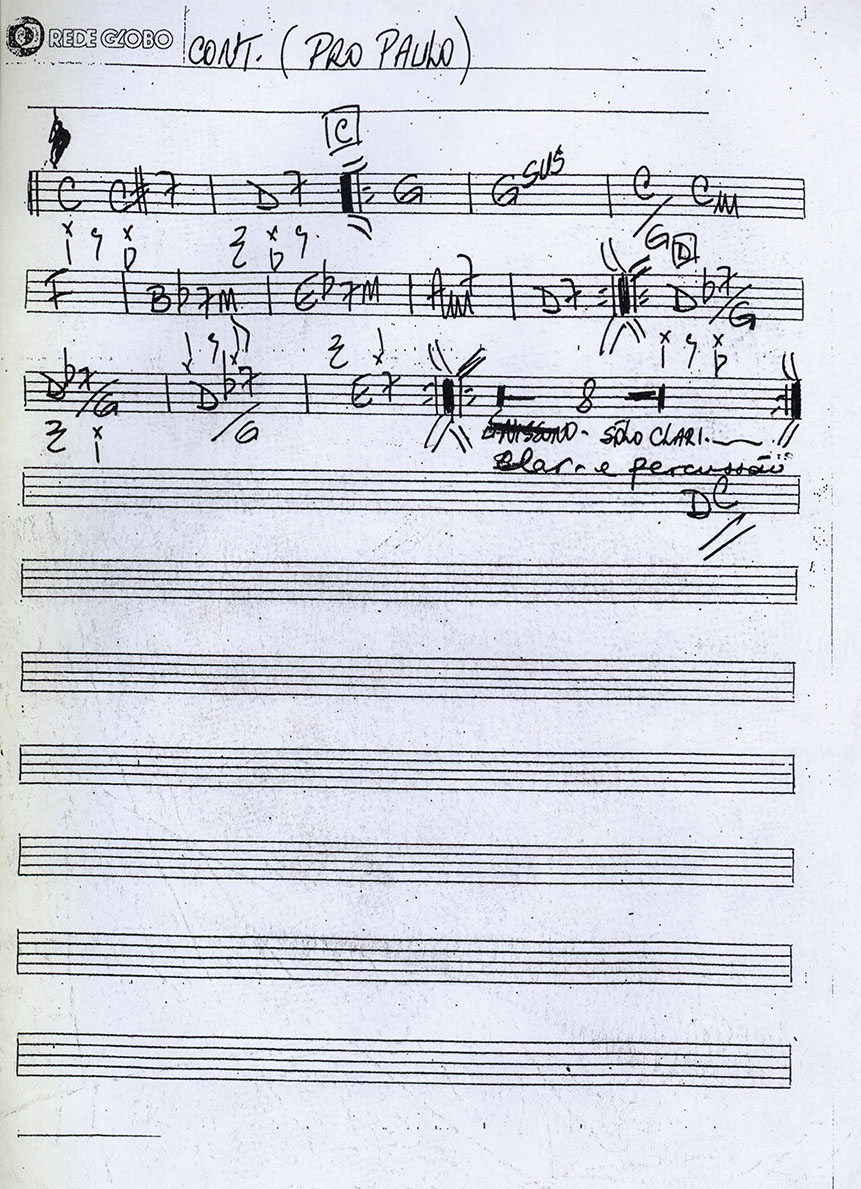 REDE GLOBO CONT. (PRO PAULO)
C
C C#7 D7 G Gsus C/G Cm
D
F Bb7M Eb7M Am7 D7 Db7/G
Db7/G Db7/G E7 8
UNISSONO - SÓLO CLARI.
Clar. e percussão
DC